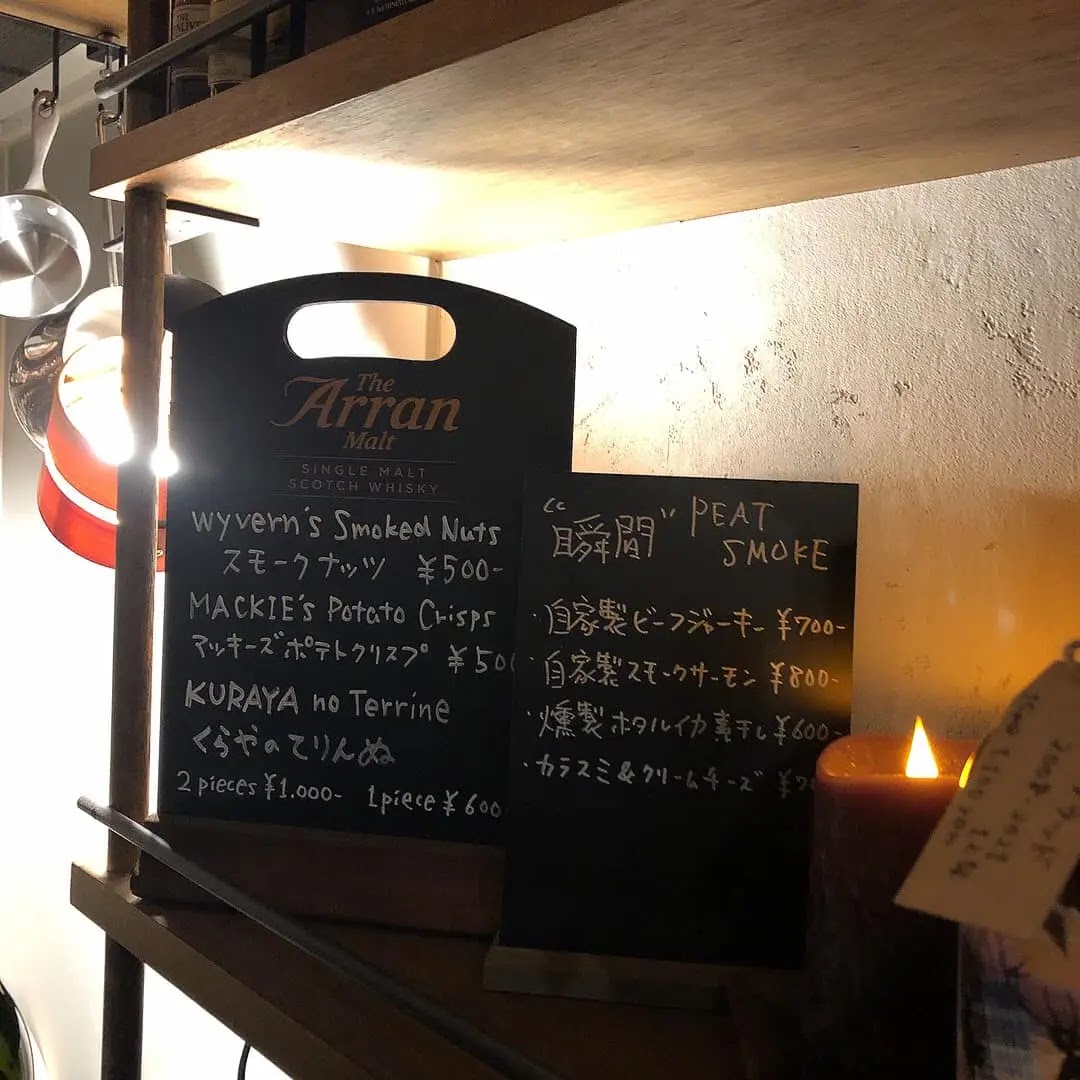 The
Arran
Malt
SINGLE MALT
SCOTCH WHISKY
Wyvern's Smoked Nuts
スモークナッツ ¥500-
MACKIE's Potato Crisps
マッキーズポテトクリスプ ¥500
KURAYA no Terrine
くらやのてりんぬ
2 pieces ¥1.000- 1piece ¥600
"瞬間" PEAT
SMOKE
・自家製ビーフジャーキー ¥700-
・自家製スモークサーモン ¥800-
・燻製ホタルイカ素干し ¥600-
・カラスミ&クリームチーズ